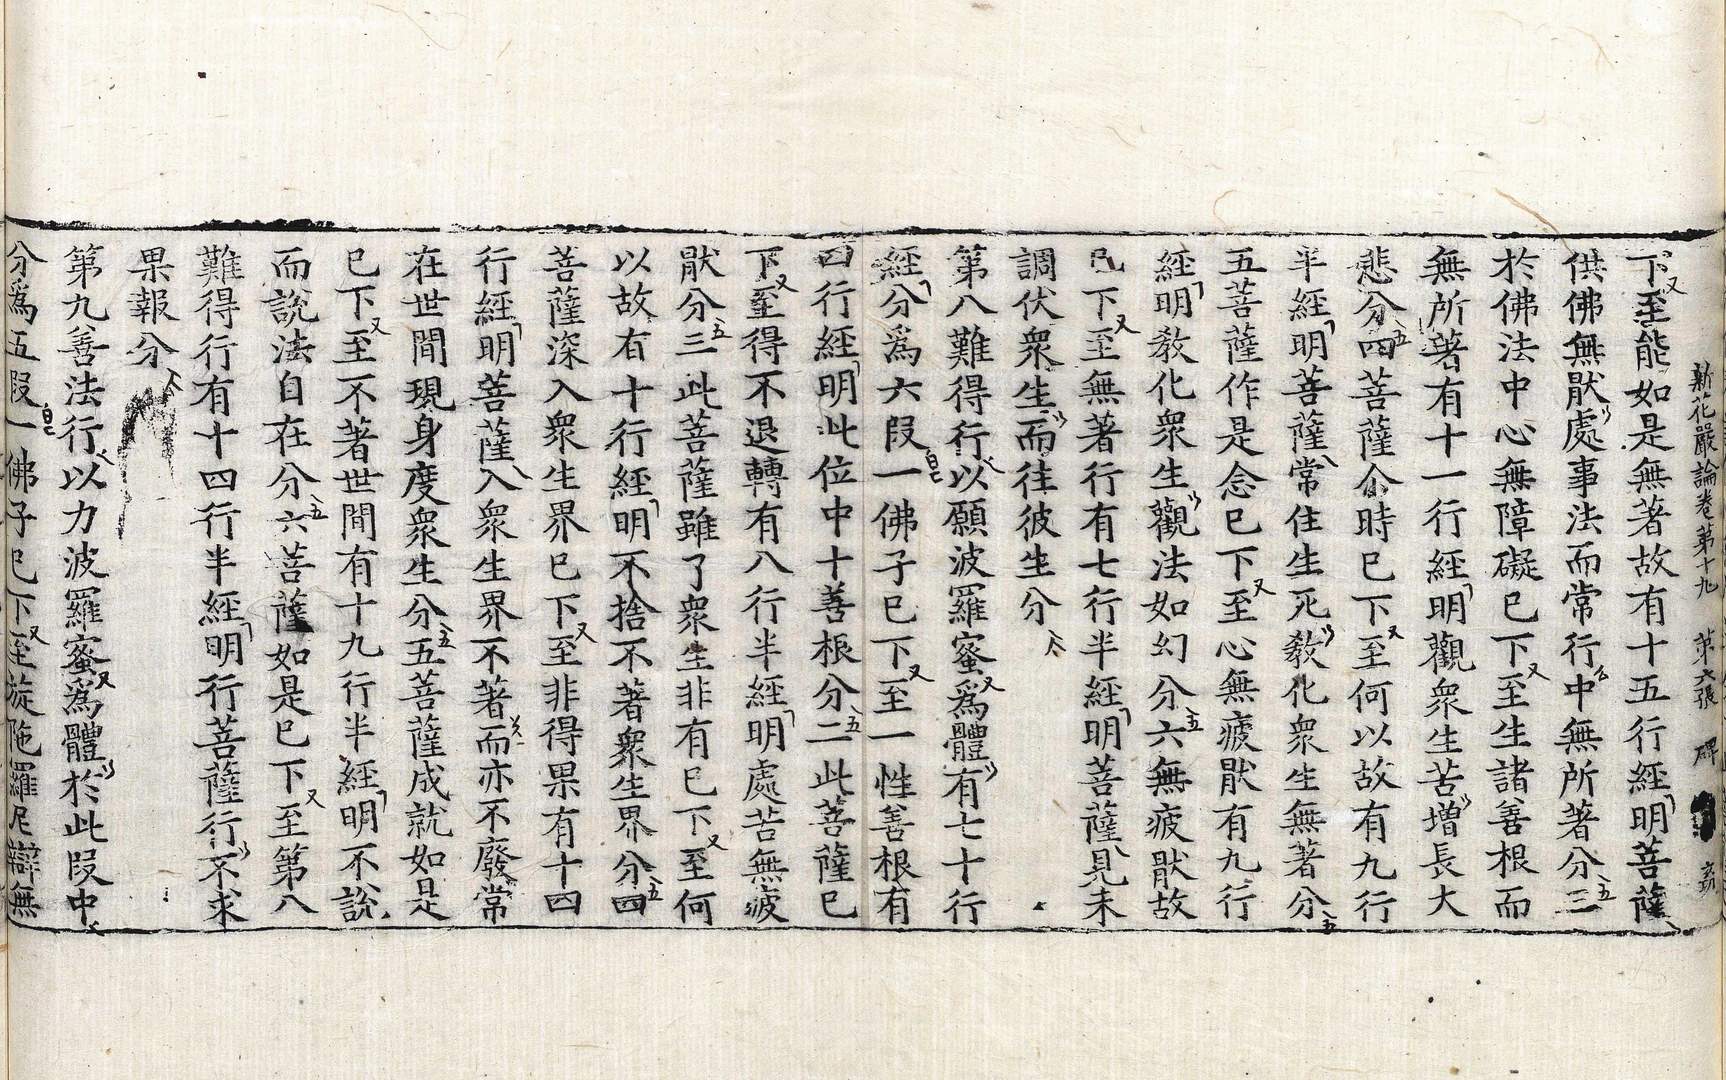 新花嚴論卷第十九　第六張　碑
下至能如是無著故有十五行經明菩薩
供佛無猒處事法而常行中無所著分三
於佛法中心無障礙巳下至生諸善根而
無所著有十一行經明觀衆生苦增長大
悲分四菩薩尒時巳下至何以故有九行
半經明菩薩常住生死教化衆生無著分
五菩薩作是念巳下至心無疲猒有九行
經明教化衆生觀法如幻分六無疲猒故
巳下至無著行有七行半經明菩薩見未
調伏衆生而往彼生分
第八難得行以願波羅蜜爲體有七十行
經分爲六段一佛子巳下至一性善根有
四行經明此位中十善根分二此菩薩巳
下至得不退轉有八行半經明處苦無疲
猒分三此菩薩雖了衆生非有巳下至何
以故有十行經明不捨不著衆生界分四
菩薩深入衆生界巳下至非得果有十四
行經明菩薩入衆生界不著而亦不廢常
在世間現身度衆生分五菩薩成就如是
巳下至不著世間有十九行半經明不說
而說法自在分六菩薩如是巳下至第八
難得行有十四行半經明行菩薩行不求
果報分
第九善法行以力波羅蜜爲體於此段中
分爲五段一佛子巳下至旋陁羅尼辯無